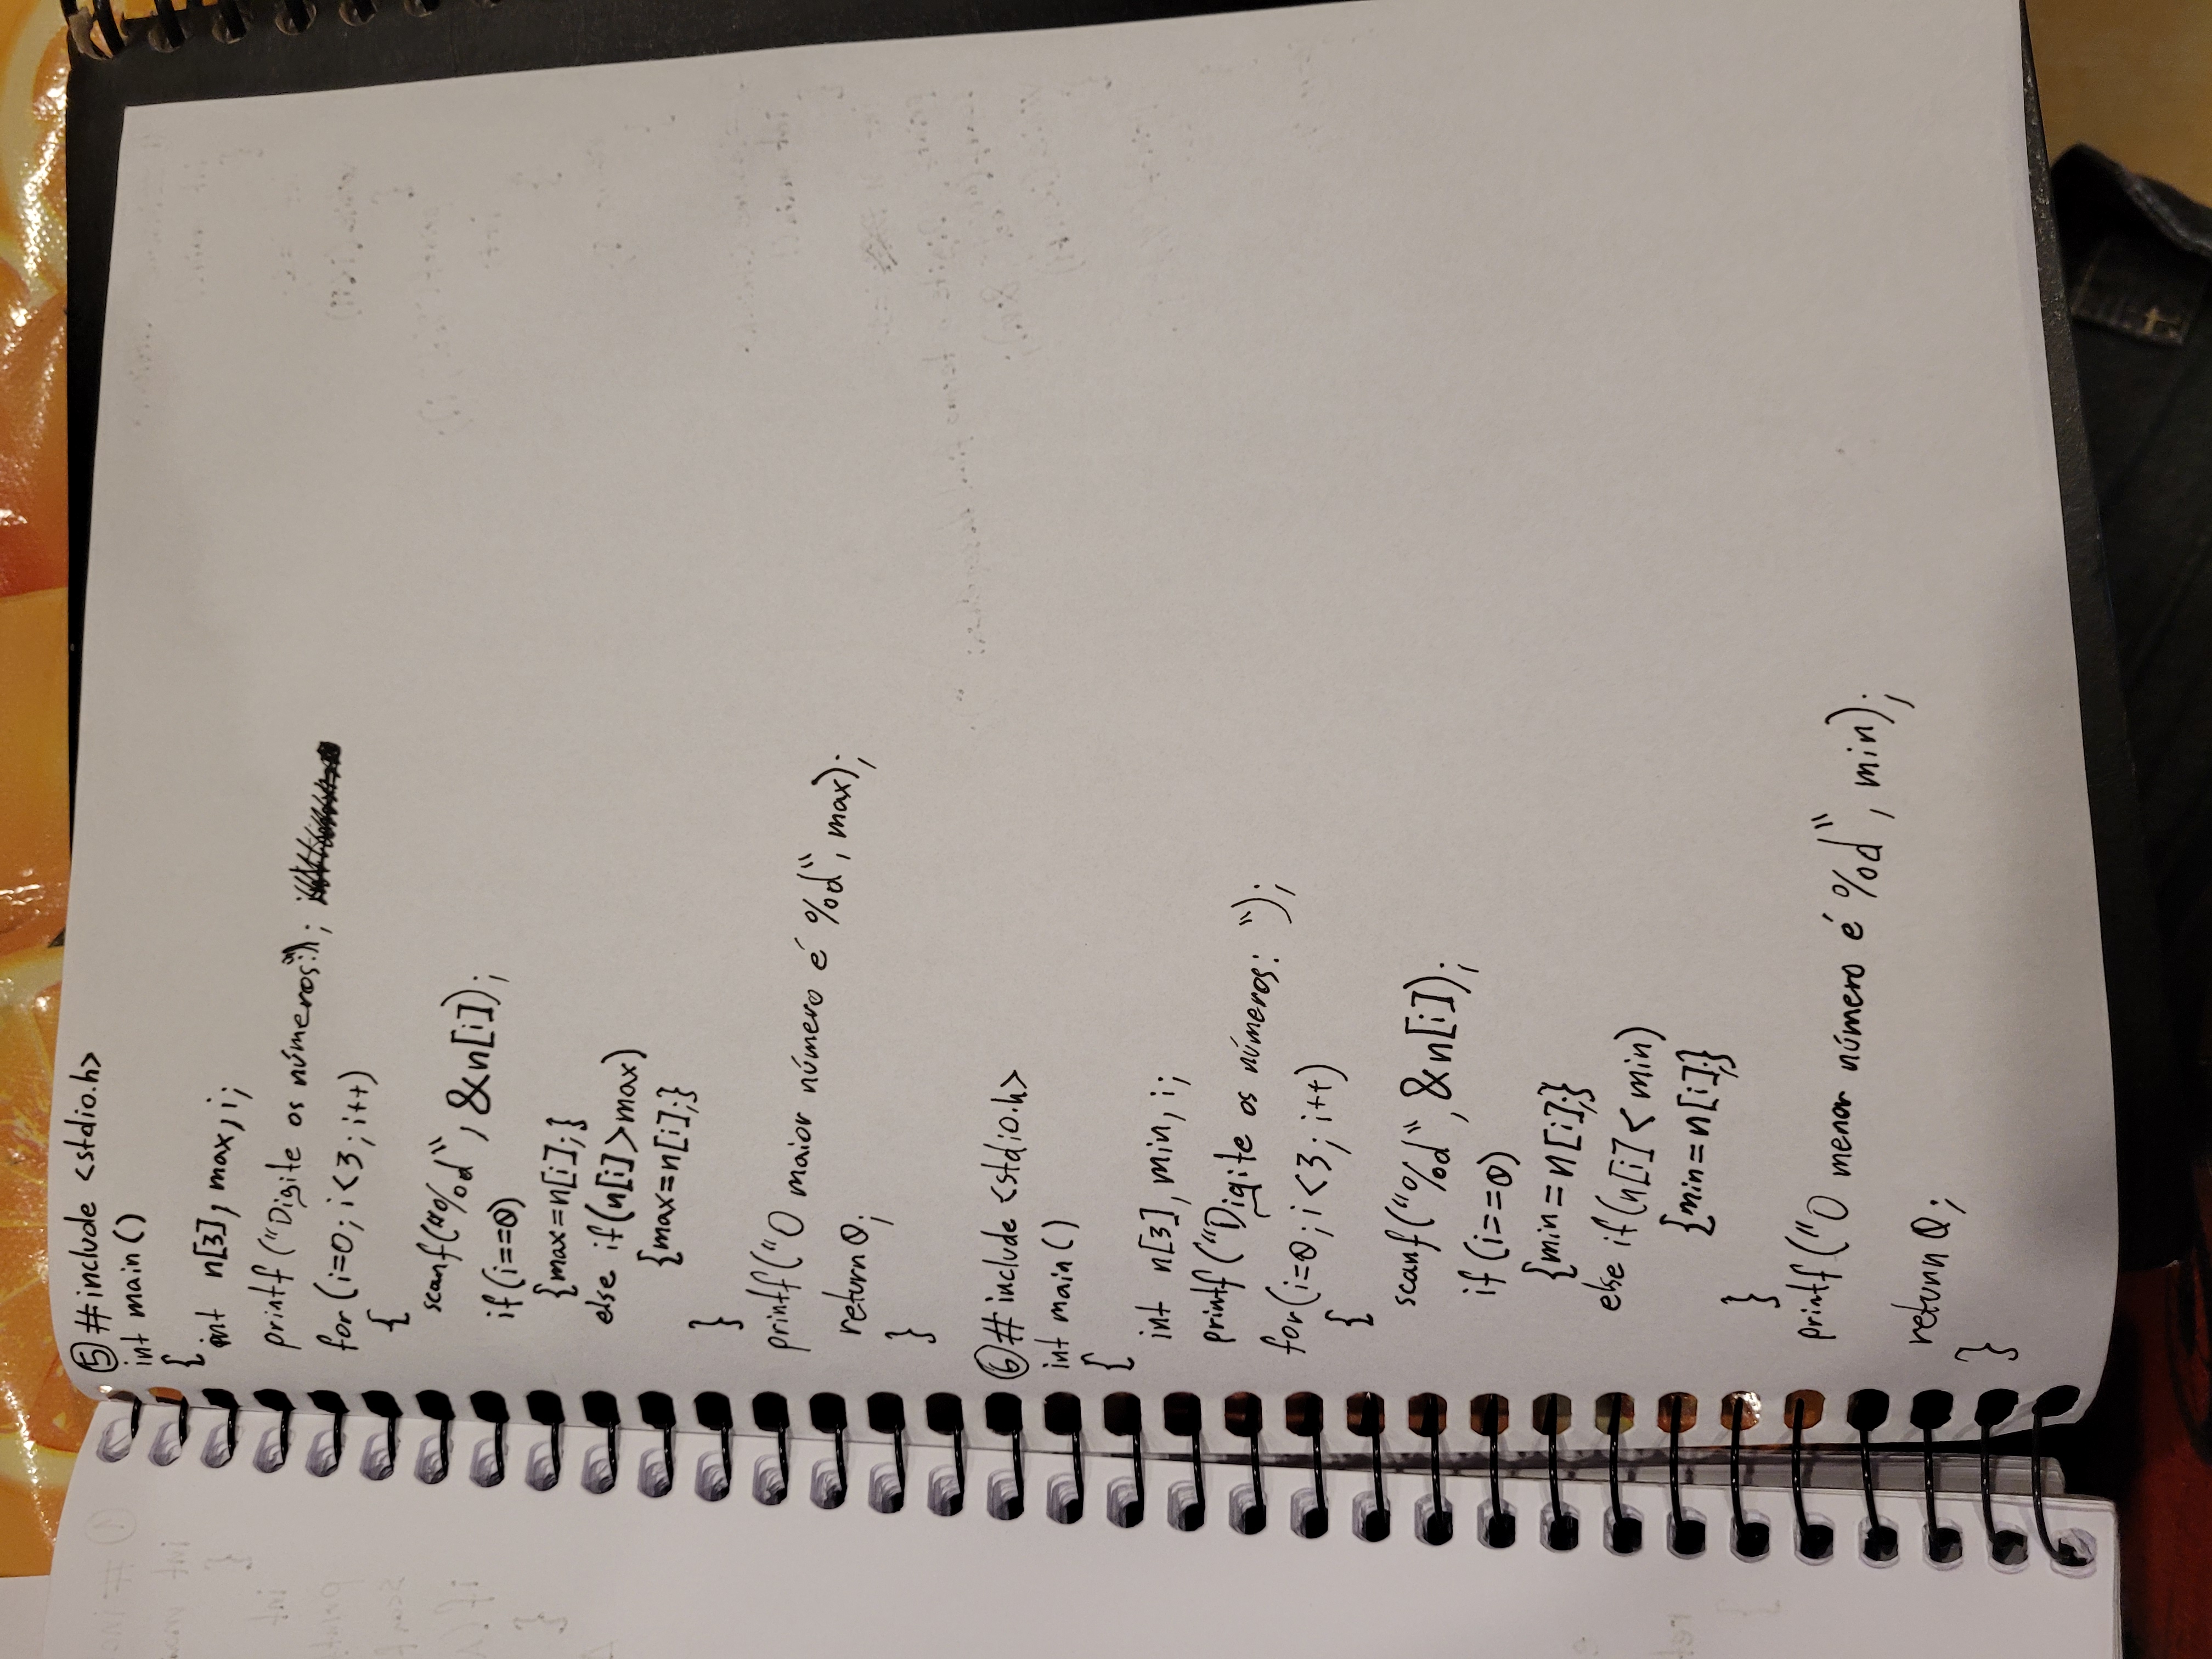 ⑤ #include <stdio.h>
int main ()
{
int n[3], max, i;
printf ("Digite os números:");
for (i=0; i<3; i++)
{
scanf("%d", &n[i]);
if (i==0)
{max=n[i];}
else if(n[i]>max)
{max=n[i];}
}
printf("O maior número é %d", max);
return 0;
}
⑥ #include <stdio.h>
int main ()
{
int n[3], min, i;
printf ("Digite os números: ");
for(i=0; i<3; i++)
{
scanf("%d", &n[i]);
if (i==0)
{min=n[i];}
else if(n[i]<min)
{min=n[i];}
}
printf ("O menor número é %d", min);
return 0;
}